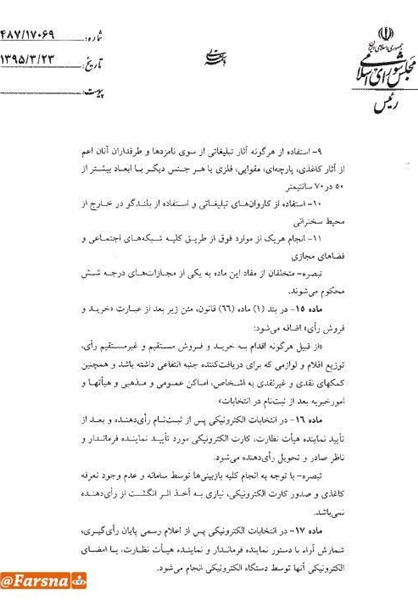 جمهوری اسلامی ایران
مجلس شورای اسلامی
رئیس
شماره: ۴۸۷/۱۷۰۶۹
تاریخ: ۱۳۹۵/۳/۲۳
پیوست:
۹- استفاده از هرگونه آثار تبلیغاتی از سوی نامزدها و طرفداران آنان اعم
از آثار کاغذی، پارچه‌ای، مقوایی، فلزی یا هر جنس دیگر با ابعاد بیشتر از
۵۰ در ۷۰ سانتیمتر
۱۰- استفاده از کاروان‌های تبلیغاتی و استفاده از بلندگو در خارج از
محیط سخنرانی
۱۱- انجام هریک از موارد فوق از طریق کلیه شبکه‌های اجتماعی و
فضاهای مجازی
تبصره- متخلفان از مفاد این ماده به یکی از مجازات‌های درجه شش
محکوم می‌شوند.
ماده ۱۵- در بند (۱) ماده (۶۶) قانون، متن زیر بعد از عبارت «خرید و
فروش رأی» اضافه می‌شود:
«از قبیل هرگونه اقدام به خرید و فروش مستقیم و غیرمستقیم رأی،
توزیع اقلام و لوازمی که برای دریافت‌کننده جنبه انتفاعی داشته باشد و همچنین
کمکهای نقدی و غیرنقدی به اشخاص، اماکن عمومی و مذهبی و هیأتها و
امور خیریه بعد از ثبت‌نام در انتخابات»
ماده ۱۶- در انتخابات الکترونیکی پس از ثبت‌نام رأی‌دهنده و بعد از
تأیید نماینده هیأت نظارت، کارت الکترونیکی مورد تأیید نماینده فرماندار و
ناظر صادر و تحویل رأی‌دهنده می‌شود.
تبصره- با توجه به انجام کلیه بازبینی‌ها توسط سامانه و عدم وجود تعرفه
کاغذی و صدور کارت الکترونیکی، نیازی به أخذ اثر انگشت از رأی‌دهنده
نمی‌باشد.
ماده ۱۷- در انتخابات الکترونیکی پس از اعلام رسمی پایان رأی‌گیری،
شمارش آراء با دستور نماینده فرماندار و نماینده هیأت نظارت، با امضای
الکترونیکی آنها توسط دستگاه الکترونیکی انجام می‌شود.
@Farsna